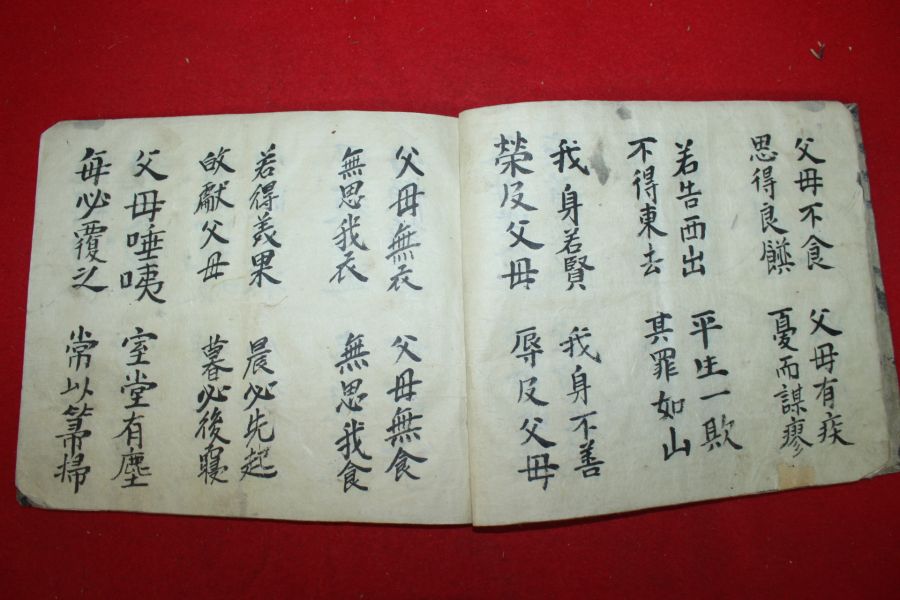 父母不食
思得良饌
父母有疾
憂而謀瘳
若告西出
不得東去
平生一欺
其罪如山
我身若賢
榮及父母
我身不善
辱及父母
父母無衣
無思我衣
父母無食
無思我食
若得義果
故獻父母
晨必先起
暮必後寢
父母唾咦
每必覆之
室堂有塵
常以箒掃